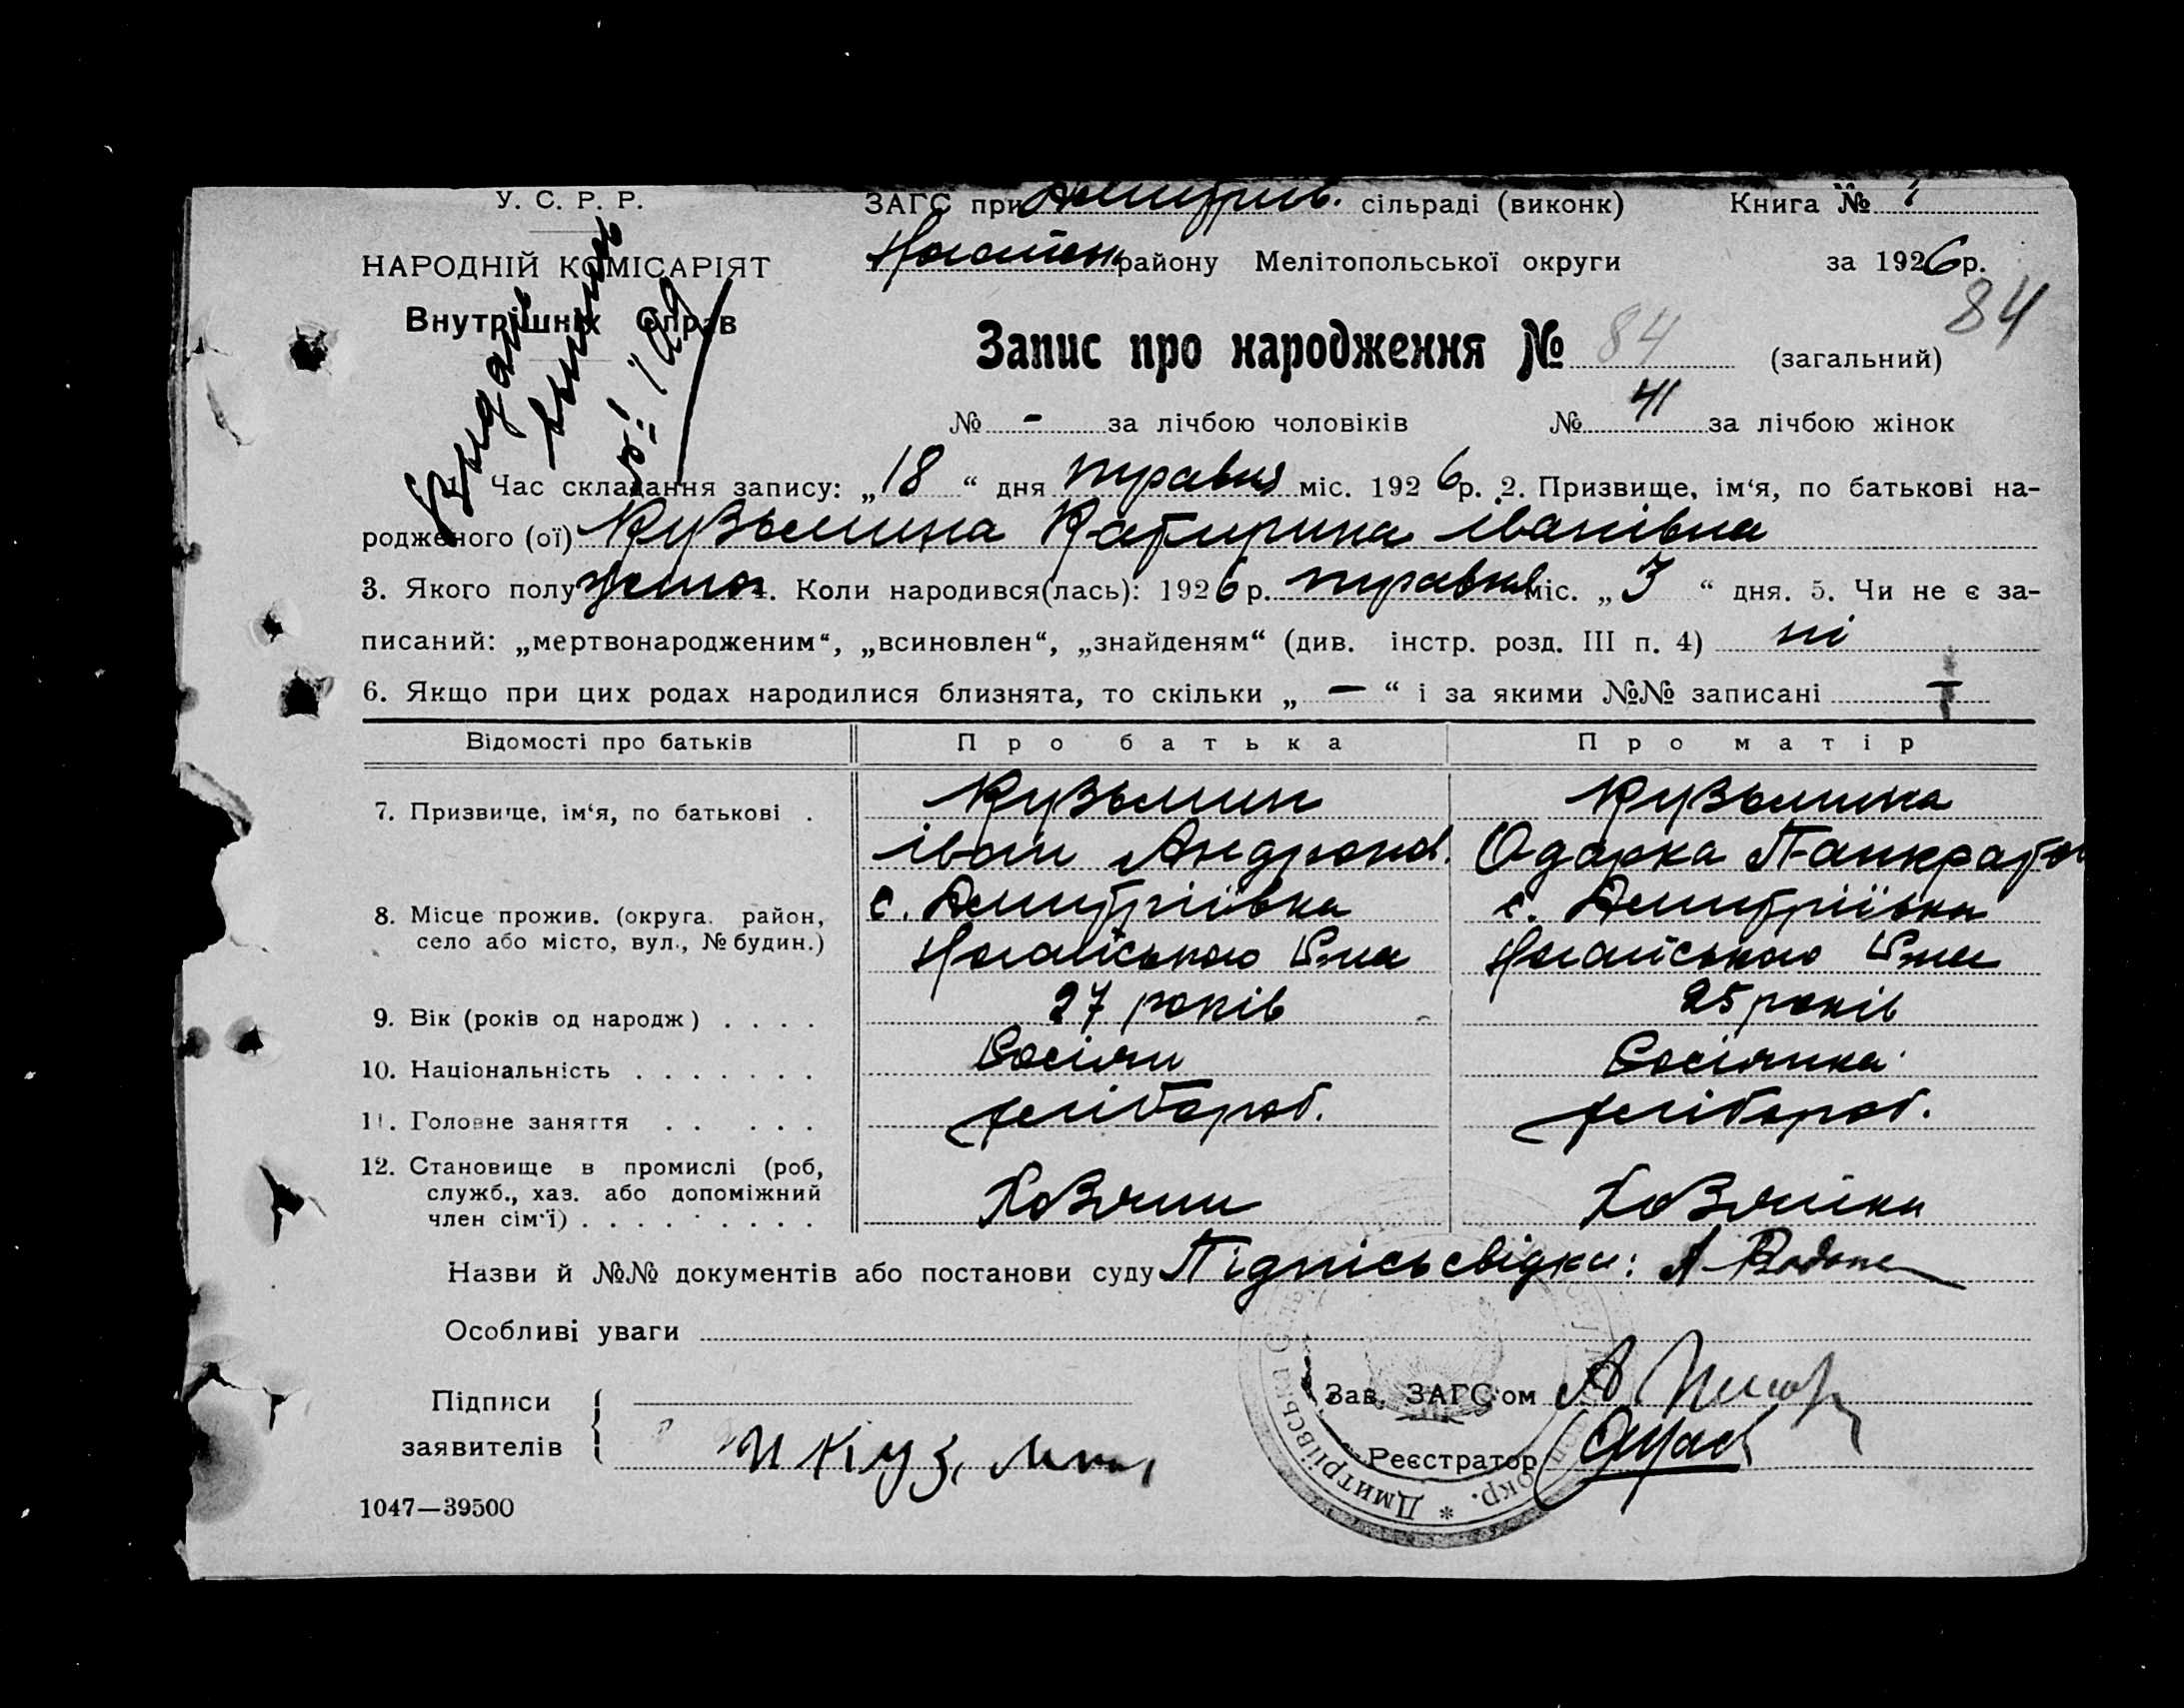 У. С. Р. Р.
НАРОДНІЙ КОМІСАРІЯТ
Внутрішніх Справ
ЗАГС при Дмитрів. сільраді (виконк) Книга № 1
району Мелітопольської округи за 1926 р.
84
Запис про народження № 84 (загальний)
№ - за лічбою чоловіків № 41 за лічбою жінок
Час складання запису: „18“ дня травня міс. 1926 р. 2. Призвище, ім‘я, по батькові на-
родженого (ої) Кузьмина Катирина Іванівна
3. Якого полу жіноч. 4. Коли народився(лась): 1926 р. травня міс. „3“ дня. 5. Чи не є за-
писаний: „мертвонародженим“, „всиновлен“, „знайденям“ (див. інстр. розд. III п. 4) ні
6. Якщо при цих родах народилися близнята, то скільки „ — “ і за якими №№ записані
Відомості про батьків Про батька Про матір
7. Призвище, ім‘я, по батькові . Кузьмин Кузьмина
Іван Андронов. Одарка Панкратов
8. Місце прожив. (округа, район, село або місто, вул., № будин.) с. Дмитріївка с. Дмитріївка
Ногайського Р-на Ногайського Р-на
9. Вік (років од народж) . . . . 27 років 25 років
10. Національність . . . . . . . Росіян Росіянка
11. Головне заняття . . . . . хлібороб. хлібороб.
12. Становище в промислі (роб, служб., хаз. або допоміжний член сім‘ї) . . . . . . . . . Хозяин Хозяйка
Назви й №№ документів або постанови суду Підпісь свідки:
Особливі уваги
Підписи
заявителів
И Кузьмин
Зав. ЗАГС‘ом
Реєстратор
Дмитрівська
окр.
1047—39500